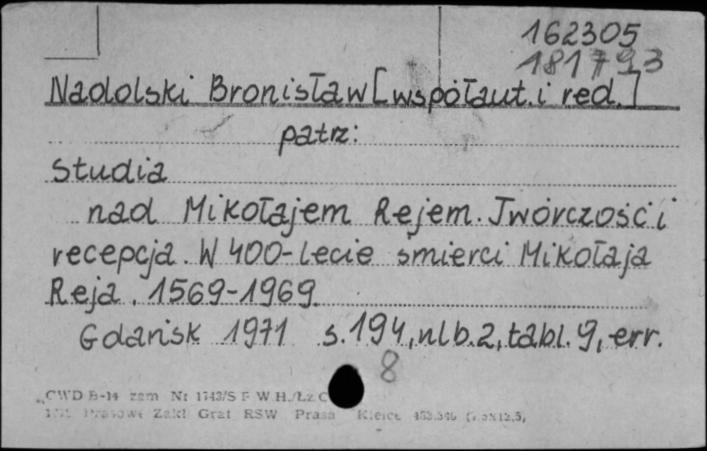 162305
181793
Nadolski Bronisław [współaut. i red.]
patrz:
Studia
nad Mikołajem Rejem. Twórczość i
recepcja. W 400-lecie śmierci Mikołaja
Reja. 1569-1969.
Gdańsk 1971 s. 194, nlb. 2, tabl. 9, err.
8
CWD B-14 zam Nr 1743/S F W.H./Łz C
Prasowe Zakł Graf RSW Prasa Kielce